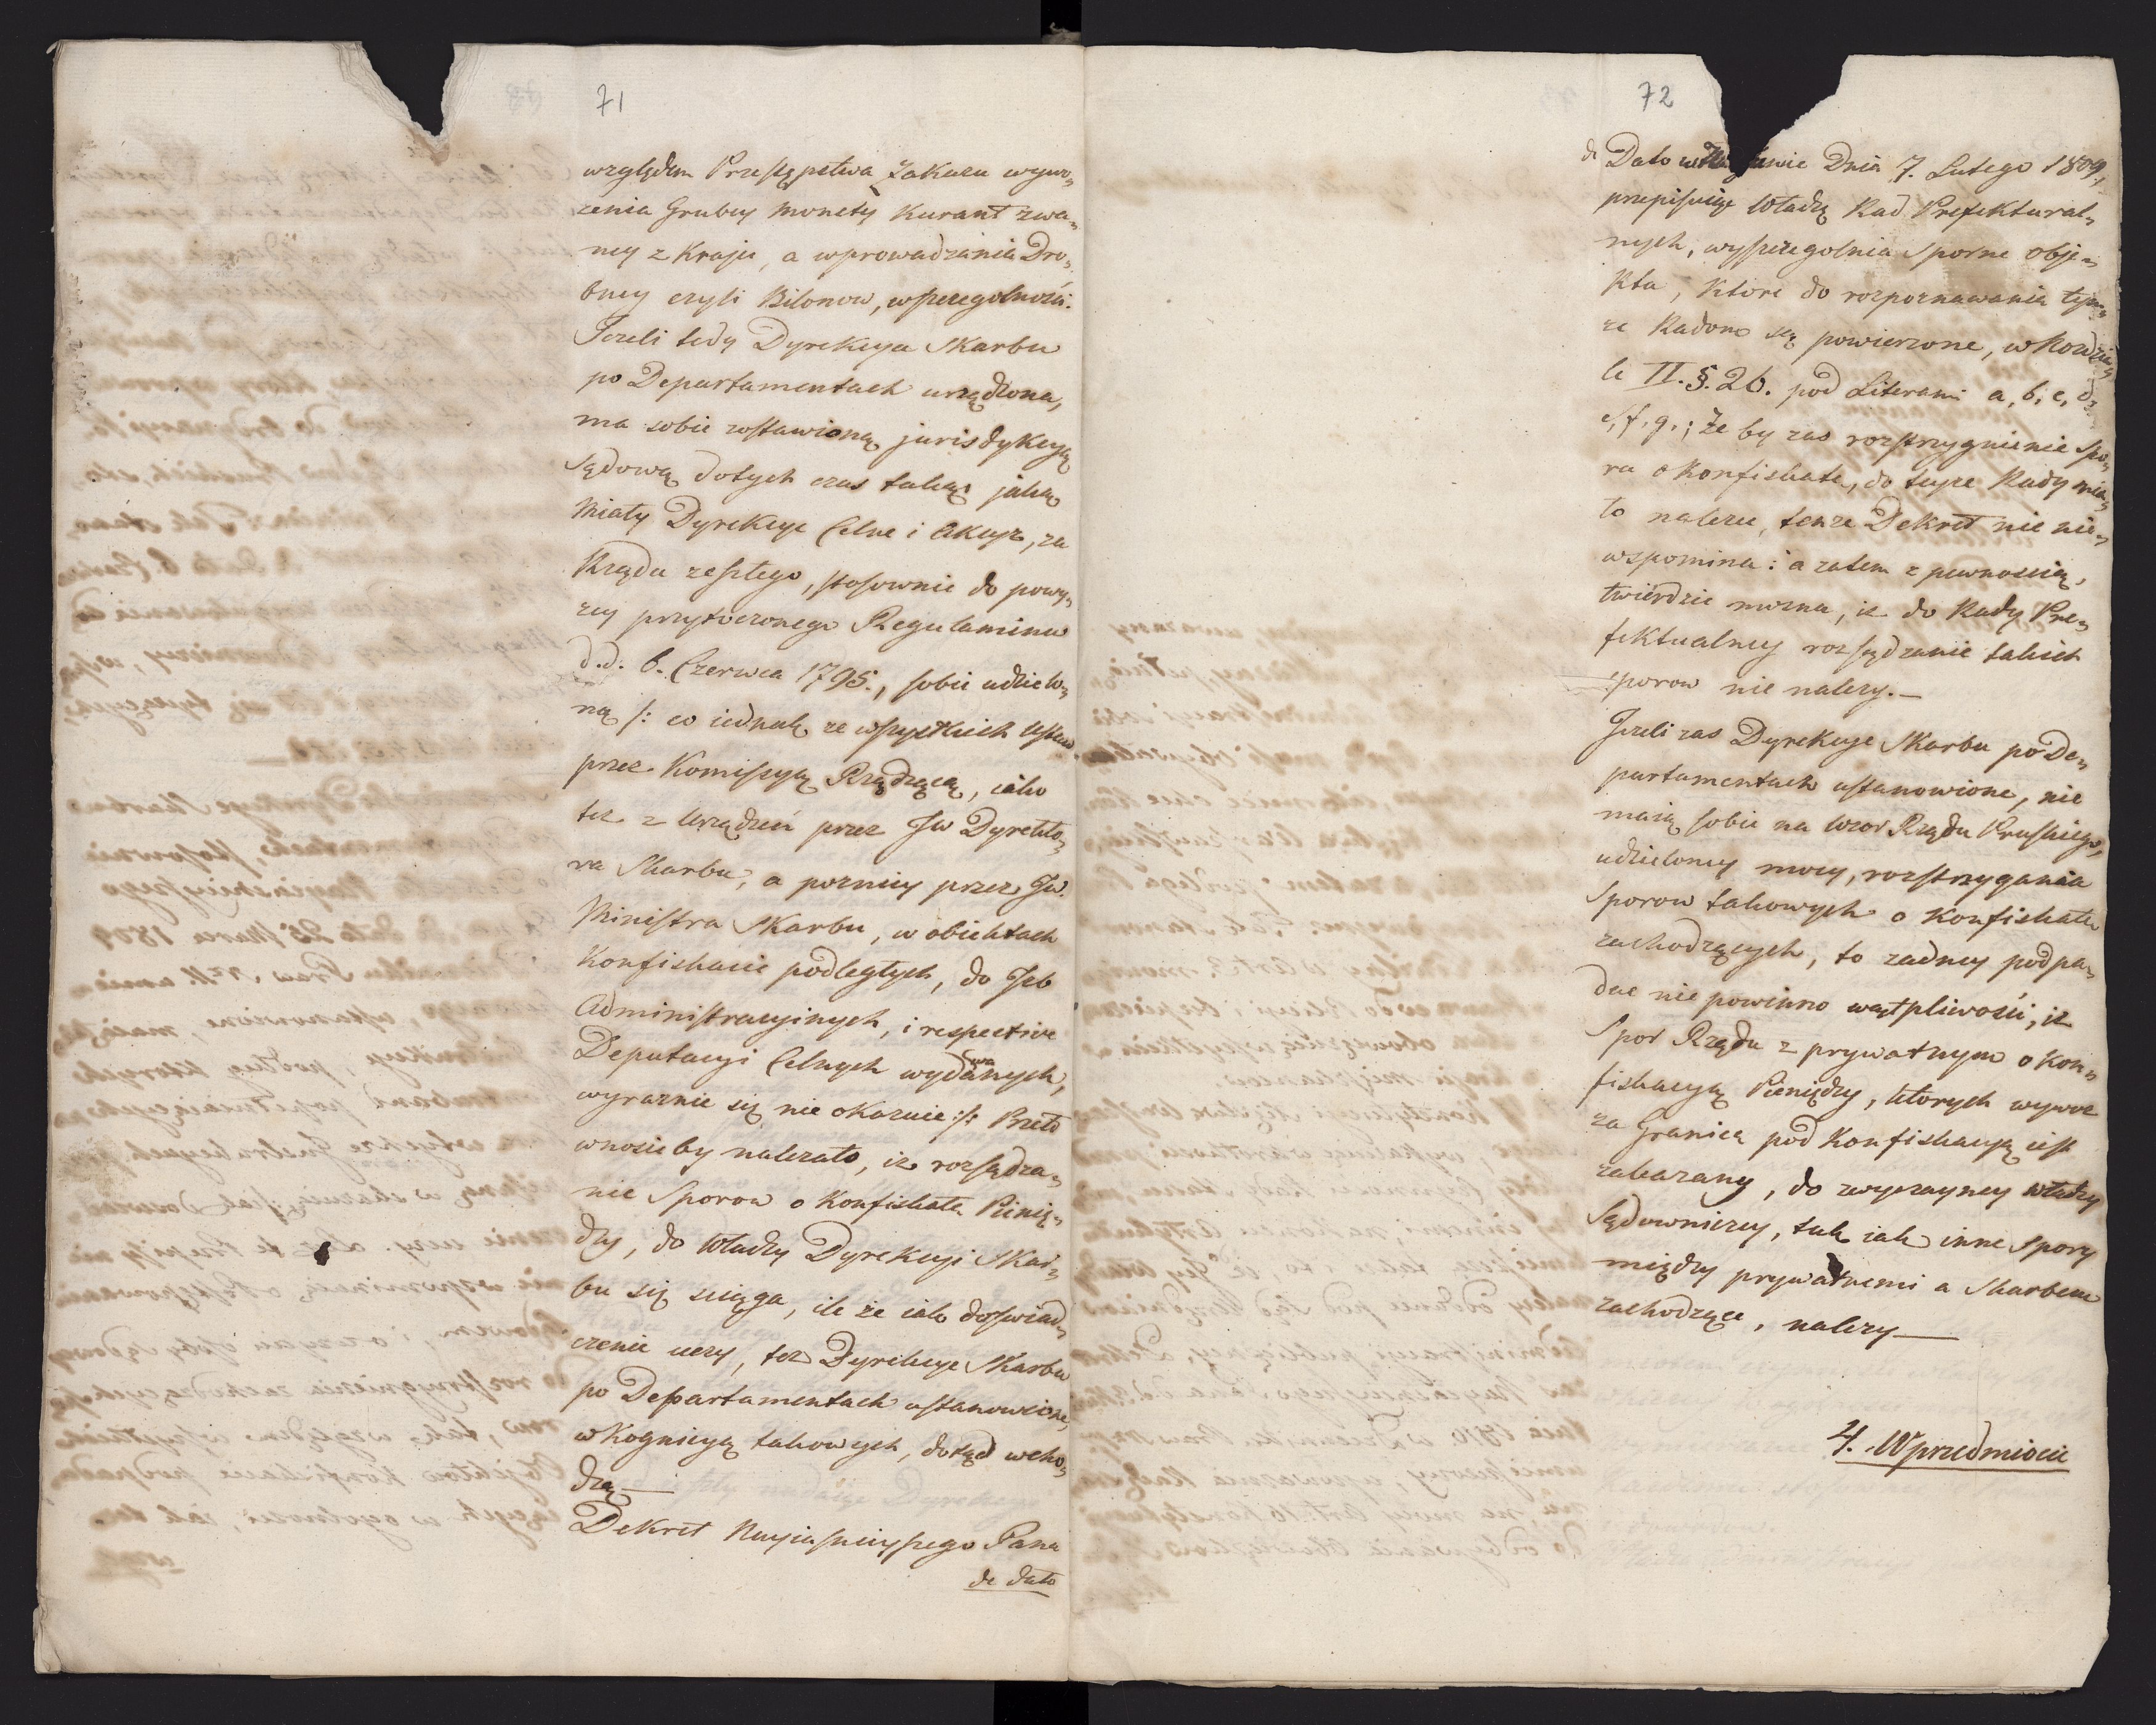 71
względem Przestępstwa Zakazu wywo„
zenia Grubey Monety Kurant zwa„
ney z Kraju, a wprowadzania Dro„
bney czyli Bilonow, wszczegolności.
Jezeli tedy Dyrekcya Skarbu
po Departamentach urządzona,
ma sobie zostawioną jurisdykcyą
sądową dotych czas taką jaką
Miały Dyrekcye Celne i Akcyz, za
Rządu zeszłego, stosownie do powy„
zey przytoczonego Regulaminu
d.d. 6. Czerwca 1795., sobie udzielo„
ną /: co iednak ze wszystkich Ustaw
przez Komissyą Rządzącą, iako
tez z Urządzeń przez JW Dyrekto„
ra Skarbu, a pozniey przez JW.
Ministra Skarbu, w obiektach
Konfiskacie podległych, do Izb
Administracyinych, i respective
Deputacyi Celnych wydawanych,
wyraznie się nie okazuie :/: Przeto
wnosic by nalezało, iz rozsądza„
nie Sporow o Konfiskatę Pienię„
dzy, do Władzy Dyrekcyi Skar„
bu się sciąga, ile że iak doswiad„
czenie uczy, tez Dyrekcye Skarbu
po Departamentach ustanowione,
w Kognicyą takowych, dotąd wcho„
dzą —
Dekret Nayiasnieyszego Pana
de dato
72
de Dato w Dnia 7. Lutego 1809,
przepisuiąc Władzę Rad Prefektural„
nych, wyszczegolnia Sporne obje„
kta, ktore do rozpoznawania tym„
ze Radom są powierzone, w Rozdzia„
le II. §. 26. pod Literami a, b, c, d,
e, f, g,; Ze by zas rozstrzygnienie spo„
ru o Konfiskatę, do teyze Rady mia„
ło nalezec, tenze Dekret nie nie„
wspomina: a zatem z pewnoscią,
twierdzic mozna, iz do Rady Pre„
fektualney rozsądzanie takich
sporow nie nalezy. —
Jezeli zas Dyrekcye Skarbu po De„
partamentach ustanowione, nie
maią sobie na wzor Rządu Pruskiego,
udzieloney mocy, rozstrzygania
Sporow takowych o Konfiskatę
zachodzących, to zadney podpa„
dac nie powinno wątpliwości, iz
Spor Rządu z prywatnym o Kon„
fiskacyą Pieniędzy, ktorych wywoz
za Granicę pod Konfiskacyą iest
zakazany, do zwyczayney władzy
Sądowniczey, tak iak inne Spory
między prywatnemi a Skarbem
zachodzące, nalezy —
4. W przedmiocie